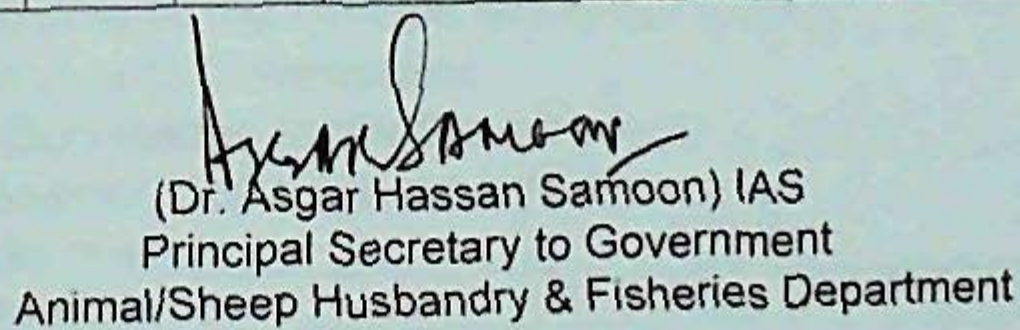 Asgar Samoon
(Dr. Asgar Hassan Samoon) IAS
Principal Secretary to Government
Animal/Sheep Husbandry & Fisheries Department